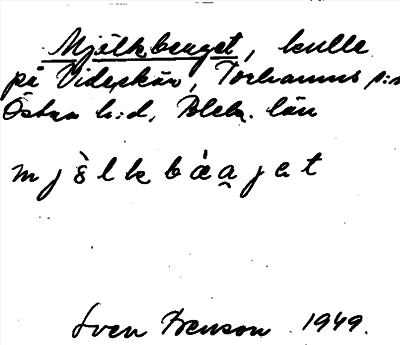 Mjölkberget, kulle
på Videskär, Torhamns s:n
Östra h:d, Blek. län
mjö̀lkbáa̯jet
Sven Benson 1949.